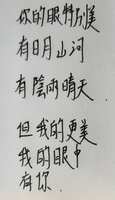 你的眼特別美
有日月山河
有陰雨晴天
但我的更美
我的眼中
有你